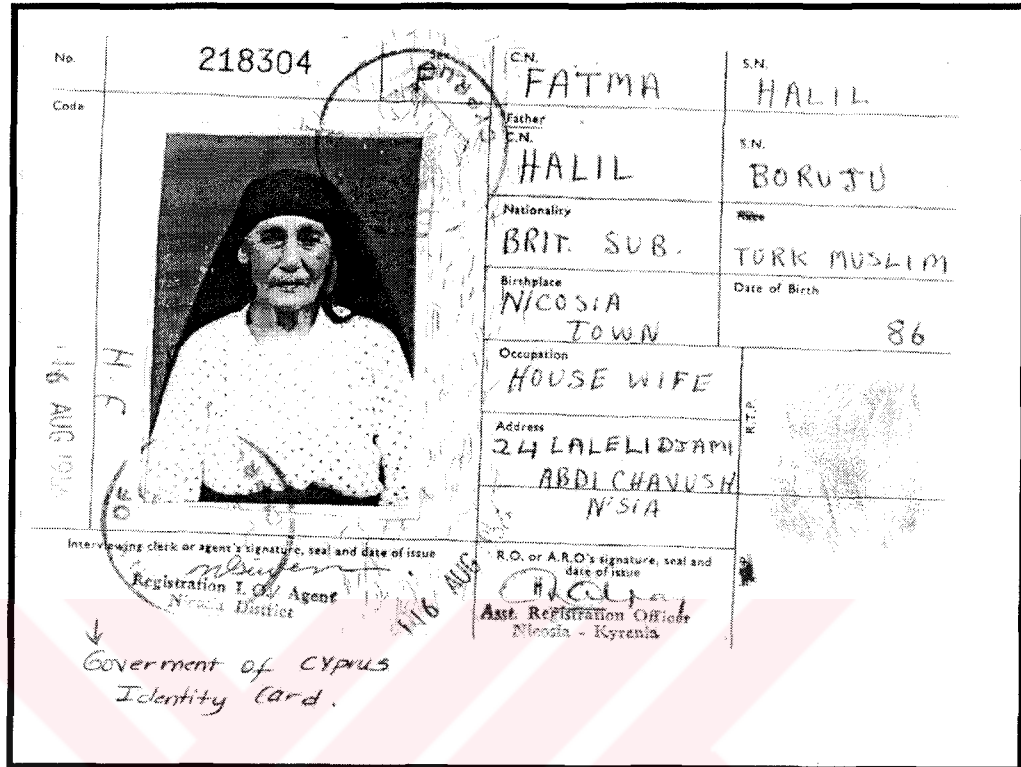 No. 218304
Sex F
C.N. FATMA S.N. HALIL
Code
Father
C.N. HALIL S.N. BORUJU
Nationality
BRIT. SUB.
Race
TURK MUSLIM
Birthplace
NICOSIA
TOWN
Date of Birth
86
Occupation
HOUSE WIFE
R.T.P.
Address
24 LALELIDJAMI
ABDI CHAVUSH
N'SIA
H.C
16 AUG
CYPRUS
Interviewing clerk or agent's signature, seal and date of issue
Registration I.O./Agent
Nicosia District
16 AUG
R.O. or A.R.O's signature, seal and
date of issue
Asst. Registration Officer
Nicosia - Kyrenia
Goverment of Cyprus
Identity Card.